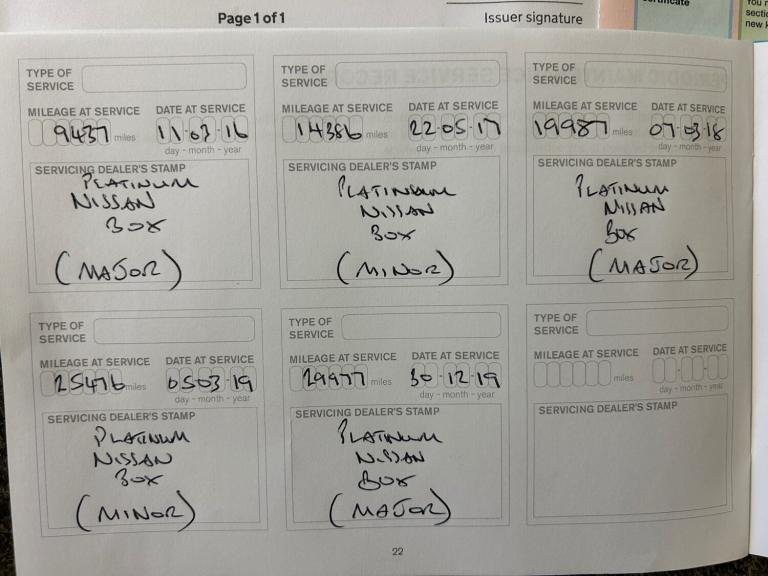 Page 1 of 1
Issuer signature
TYPE OF SERVICE
MILEAGE AT SERVICE DATE AT SERVICE
9437 miles 11-03-16
day - month - year
SERVICING DEALER'S STAMP
PLATINUM
NISSAN
BOX
(MAJOR)
TYPE OF SERVICE
MILEAGE AT SERVICE DATE AT SERVICE
14386 miles 22-05-17
day - month - year
SERVICING DEALER'S STAMP
PLATINUM
NISSAN
BOX
(MINOR)
TYPE OF SERVICE
MILEAGE AT SERVICE DATE AT SERVICE
19987 miles 07-03-18
day - month - year
SERVICING DEALER'S STAMP
PLATINUM
NISSAN
BOX
(MAJOR)
TYPE OF SERVICE
MILEAGE AT SERVICE DATE AT SERVICE
25476 miles 05-03-19
day - month - year
SERVICING DEALER'S STAMP
PLATINUM
NISSAN
BOX
(MINOR)
TYPE OF SERVICE
MILEAGE AT SERVICE DATE AT SERVICE
29977 miles 30-12-19
day - month - year
SERVICING DEALER'S STAMP
PLATINUM
NISSAN
BOX
(MAJOR)
TYPE OF SERVICE
MILEAGE AT SERVICE DATE AT SERVICE
miles
day - month - year
SERVICING DEALER'S STAMP
22